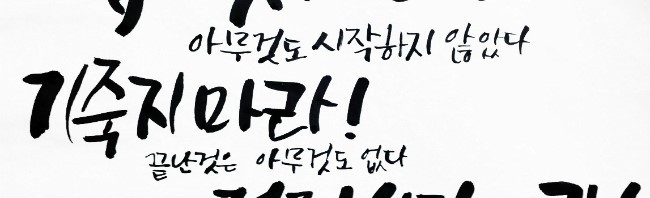 아무것도 시작하지 않았다
기죽지 마라!
끝난것은 아무것도 없다